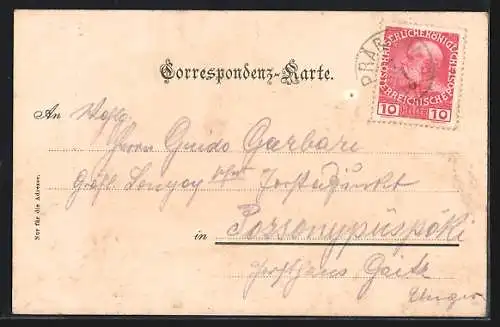 Correspondenz-Karte.
KAISERLICHEKÖNIGLICHE
ÖSTERREICHISCHE POST
10 HELLER 10
PRAG
An Wohlg.
Herrn Guido Garbari
Gräfl. Lonyay Forstadjunkt
in Pozsonypüspöki
Forsthaus Gaitz
Ungar
Nur für die Adresse.